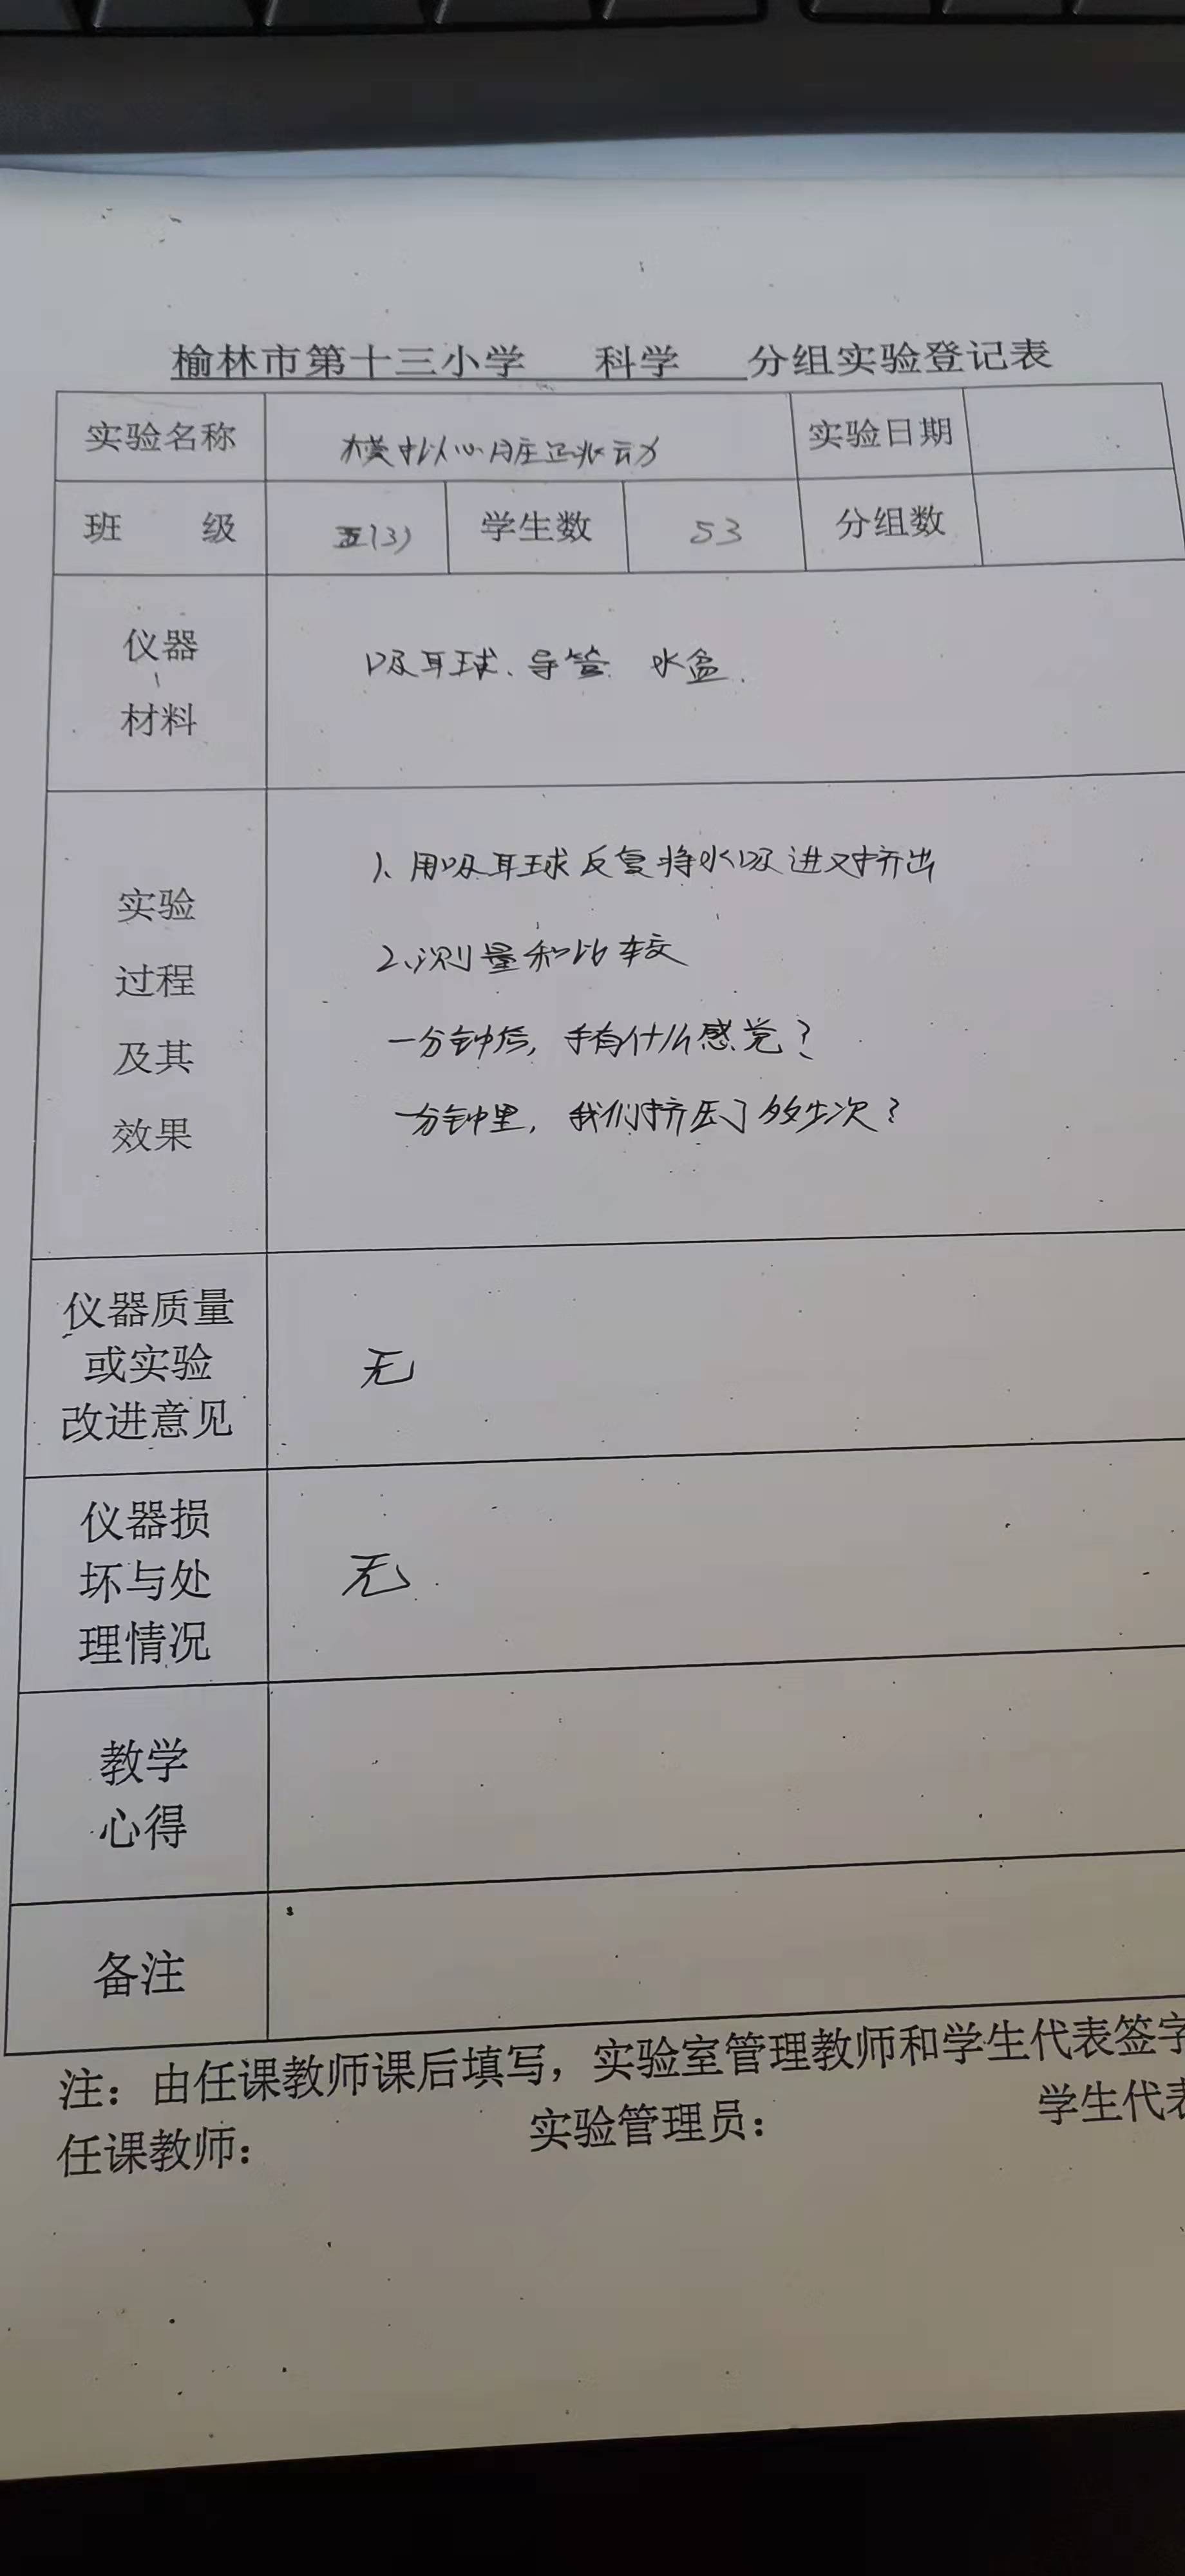 榆林市第十三小学 科学 分组实验登记表
实验名称 模拟心脏运动 实验日期
班 级 五(3) 学生数 53 分组数
仪器
材料
吸耳球、导管 水盆.
实验
过程
及其
效果
1、用吸耳球反复将水吸进又挤出
2、测量和比较
一分钟后, 手有什么感觉?
一分钟里, 我们挤压了多少次?
仪器质量
或实验
改进意见
无
仪器损
坏与处
理情况
无
教学
心得
备注
注：由任课教师课后填写，实验室管理教师和学生代表签字
任课教师： 实验管理员： 学生代表